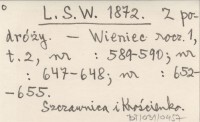 L. S. W. 1872. Z po-
dróży. — Wieniec rocz. 1,
t. 2, nr : 589-590; nr
: 647-648; nr : 652-
-655.
Szczawnica i Krościenko.